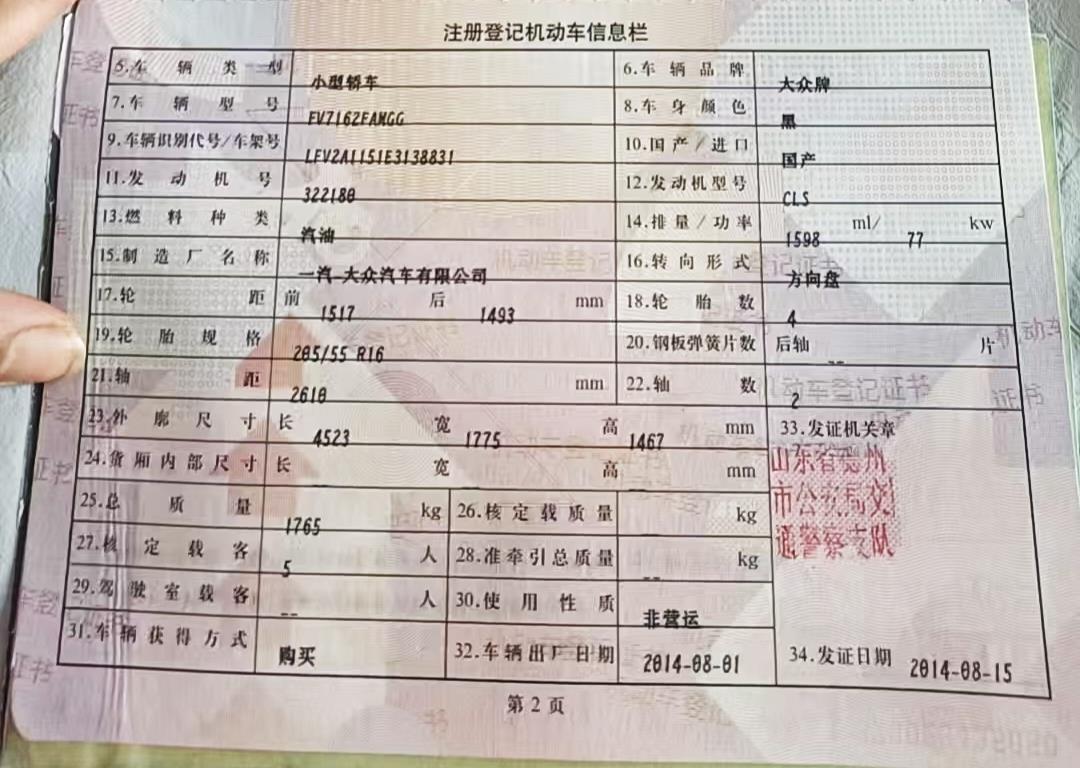 注册登记机动车信息栏
5.车辆类型 小型轿车 6.车辆品牌 大众牌
7.车辆型号 FV7162FAMGG 8.车身颜色 黑
9.车辆识别代号/车架号 LFV2A1151E3138831 10.国产/进口 国产
11.发动机号 322180 12.发动机型号 CLS
13.燃料种类 汽油 14.排量/功率 1598 ml/ 77 kw
15.制造厂名称 一汽-大众汽车有限公司 16.转向形式 方向盘
17.轮距 前 1517 后 1493 mm 18.轮胎数 4
19.轮胎规格 205/55 R16 20.钢板弹簧片数 后轴 -- 片
21.轴距 2610 mm 22.轴数 2
23.外廓尺寸 长 4523 宽 1775 高 1467 mm 33.发证机关章
24.货厢内部尺寸 长 宽 高 mm
山东省德州
市公安局交
通警察支队
25.总质量 1765 kg 26.核定载质量 kg
27.核定载客 5 人 28.准牵引总质量 -- kg
29.驾驶室载客 -- 人 30.使用性质 非营运
31.车辆获得方式 购买 32.车辆出厂日期 2014-08-01 34.发证日期 2014-08-15
第2页